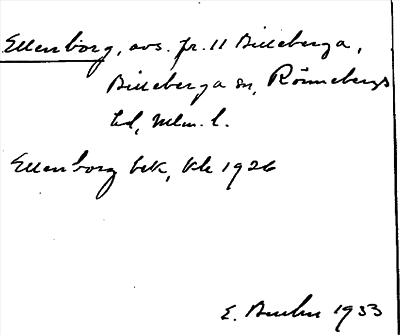 Ellenborg, avs. fr. 11 Billeberga,
Billeberga sn, Rönnebergs
hd, Mlm. l.
Ellenborg bek, kk 1926
E. 1933